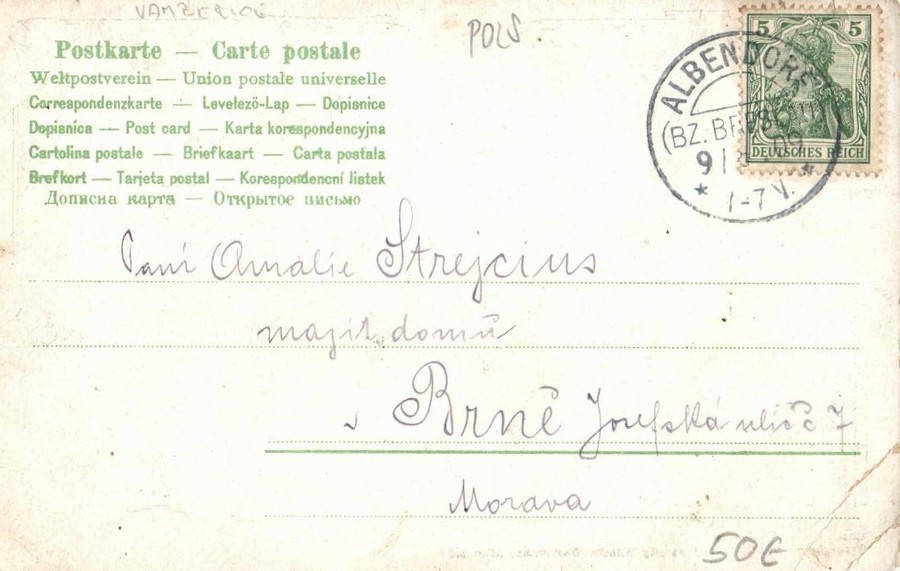 VAMBEŘICE
POLS.
Postkarte — Carte postale
Weltpostverein — Union postale universelle
Correspondenzkarte — Levelezö-Lap — Dopisnice
Dopisnica — Post card — Karta korespondencyjna
Cartolina postale — Briefkaart — Carta postala
Brefkort — Tarjeta postal — Korespondencní listek
Дописна карта — Открытое письмо
5 5
DEUTSCHES REICH
ALBENDORF
(BZ. BRESLAU)
9
* 1-7 V. *
Paní Amalie Strejcius
majit. domů
v Brně Josefská ulič č 7
Morava
50€